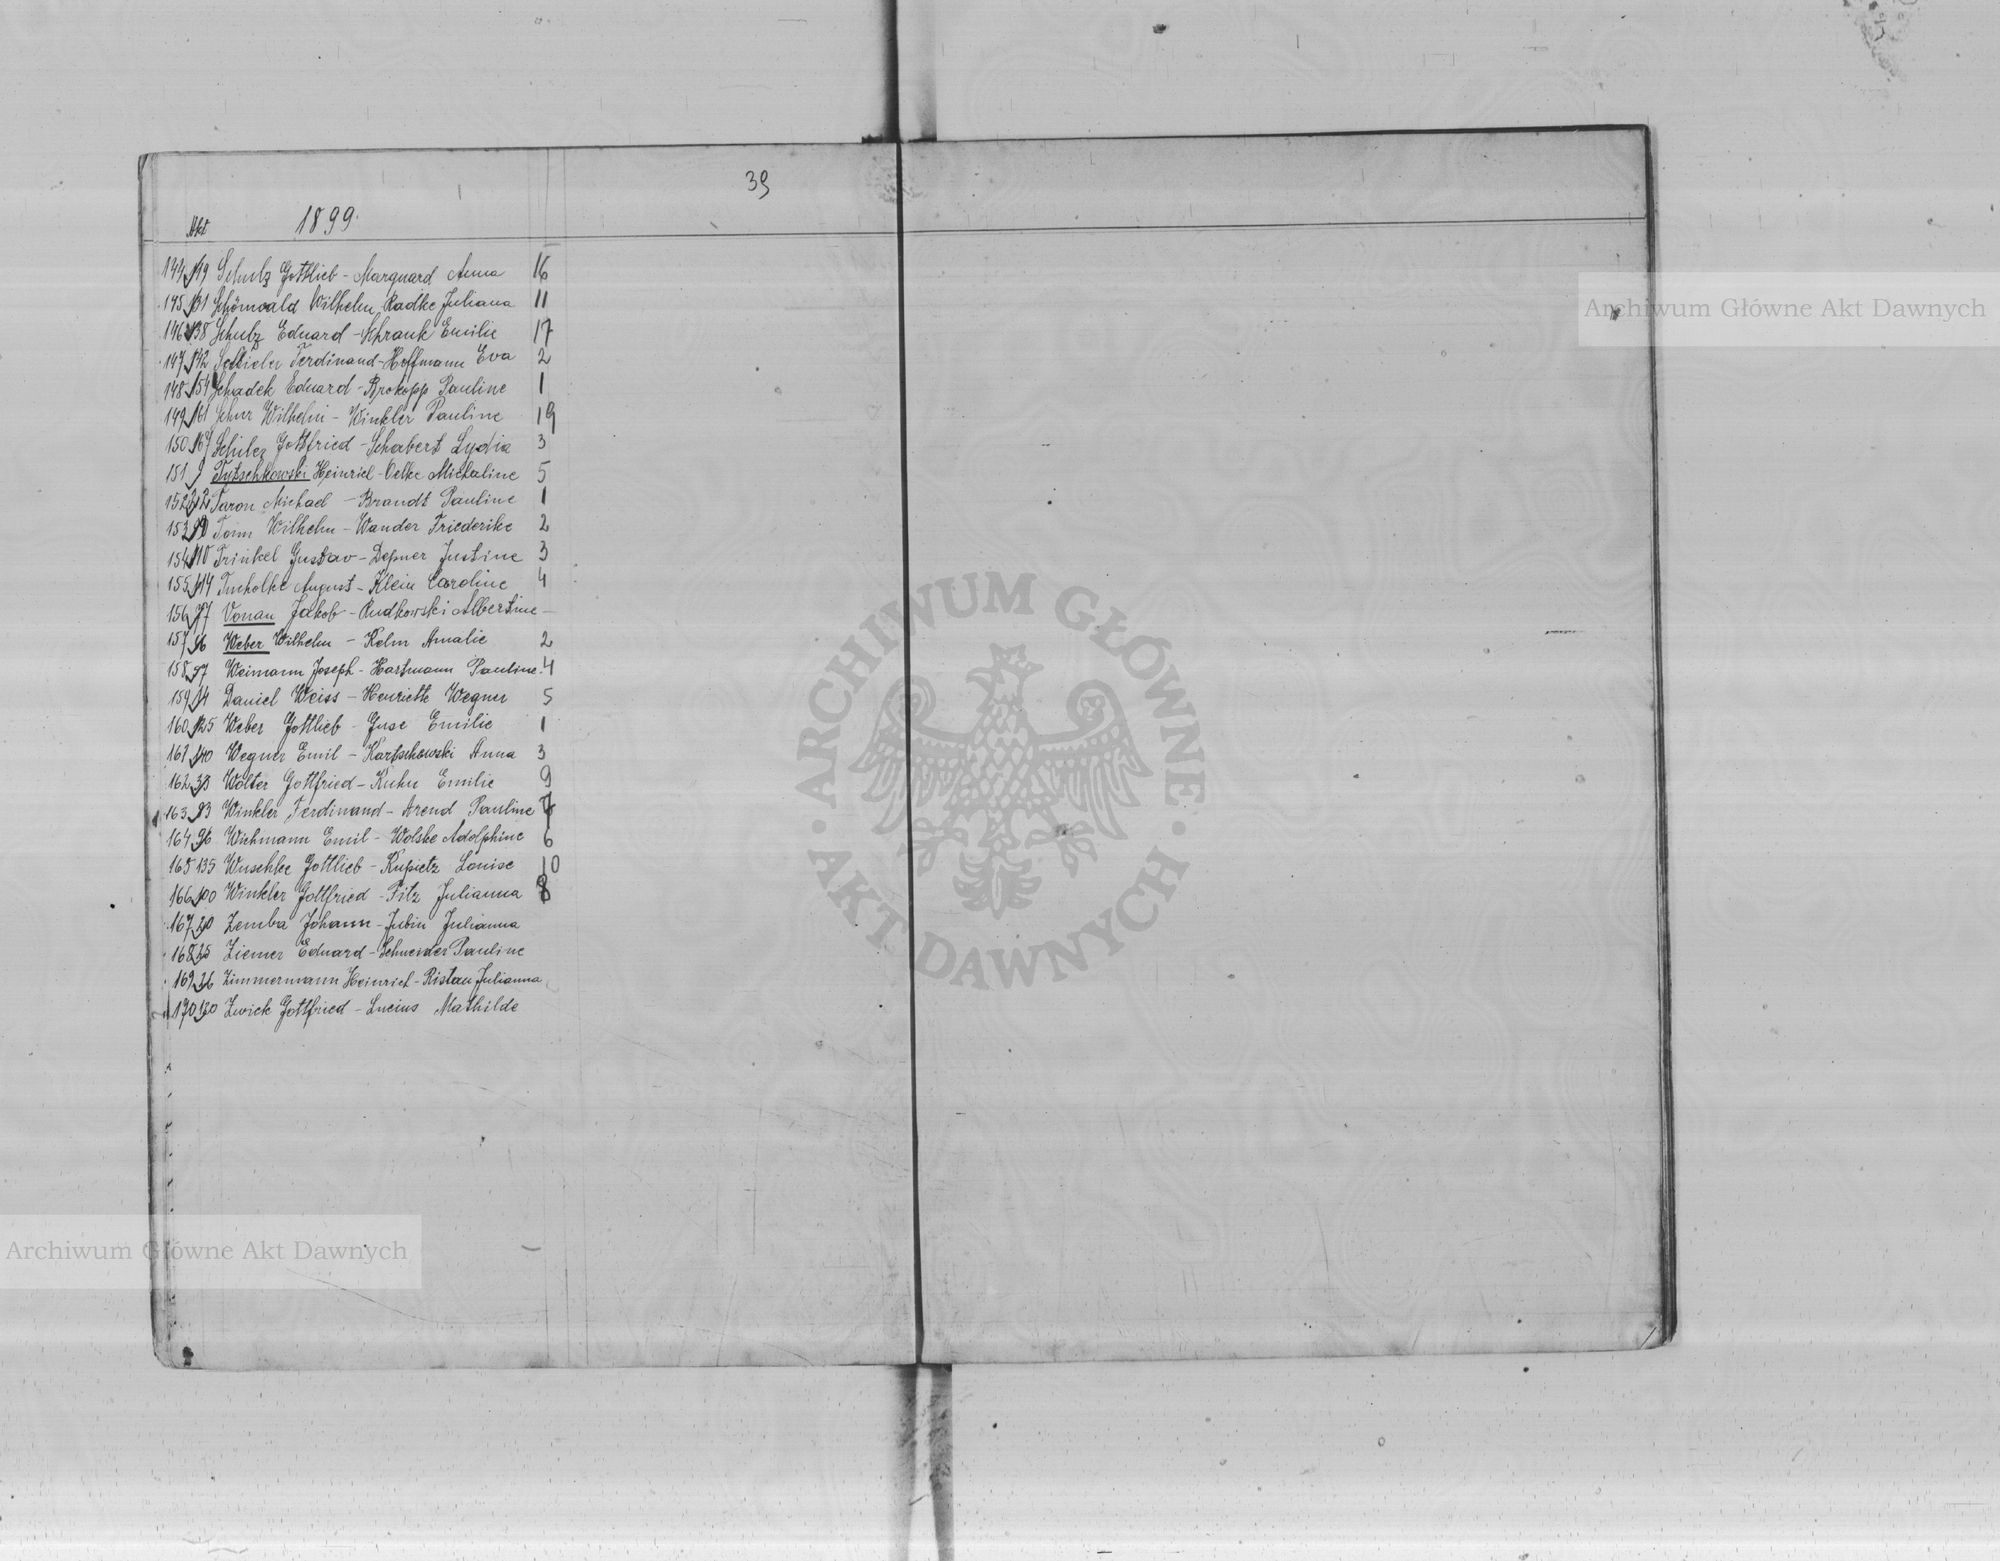 39
Akt 1899.
144 119 Schulz Gottlieb - Marquard Anna 16
145 131 Schönwald Wilhelm, Radke Juliana 11
146 138 Schulz Eduard - Schrank Emilie 17
147 142 Ferdinand - Hoffmann Eva 2
148 154 Schadek Eduard - Prokopp Pauline 1
149 161 Schur Wilhelm - Winkler Pauline 19
150 167 Schulz Gottfried - Schabert Lydia 3
151 9 Tytschkowski Heinrich - Oelke Michaline 5
152 Taron Michael - Brandt Pauline 1
153 Tom Wilhelm - Wander Friederike 2
154 110 Trinkel Gustav - Depner Justine 3
155 114 Tucholke August - Klein Caroline 4
156 77 Vonau Jakob - Rudkowski Albertine -
157 16 Weber Wilhelm - Kelm Amalie 2
158 27 Weimann Joseph - Hartmann Pauline. 4
159 Daniel Weiss - Henriette Wegner 5
160 125 Weber Gottlieb - Guse Emilie 1
161 140 Wegner Emil - Kartschowski Anna 3
162 38 Wolter Gottfried - Kuhn Emilie 9
163 93 Winkler Ferdinand - Arend Pauline 7
164 96 Wichmann Emil - Wolske Adolphine 6
165 135 Wuschke Gottlieb - Kupietz Louise 10
166 100 Winkler Gottfried - Pitz Julianna 8
167 20 Zemba Johann - Jubin Julianna
168 25 Ziemer Eduard - Schneider Pauline
169 26 Zimmermann Heinrich - Ristau Julianna
170 120 Zwick Gottfried - Lucius Mathilde
Archiwum Główne Akt Dawnych
ARCHIWUM GŁÓWNE AKT DAWNYCH
Archiwum Główne Akt Dawnych